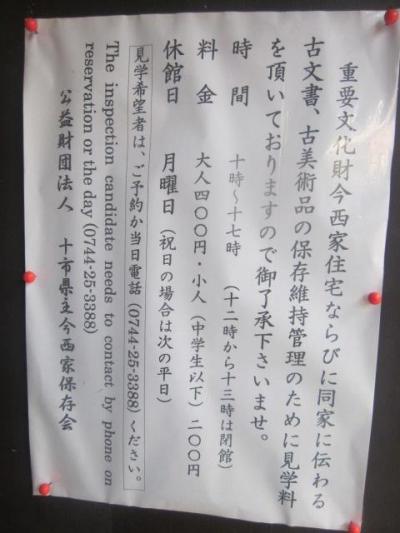 重要文化財今西家住宅ならびに同家に伝わる
古文書、古美術品の保存維持管理のために見学料
を頂いておりますので御了承下さいませ。
時間　十時～十七時　（十二時から十三時は閉館）
料金　大人四〇〇円・小人（中学生以下）二〇〇円
休館日　月曜日（祝日の場合は次の平日）
見学希望者は、ご予約か当日電話（0744-25-3388）ください。
The inspection candidate needs to contact by phone on
reservation or the day (0744-25-3388)
公益財団法人　十市県主今西家保存会